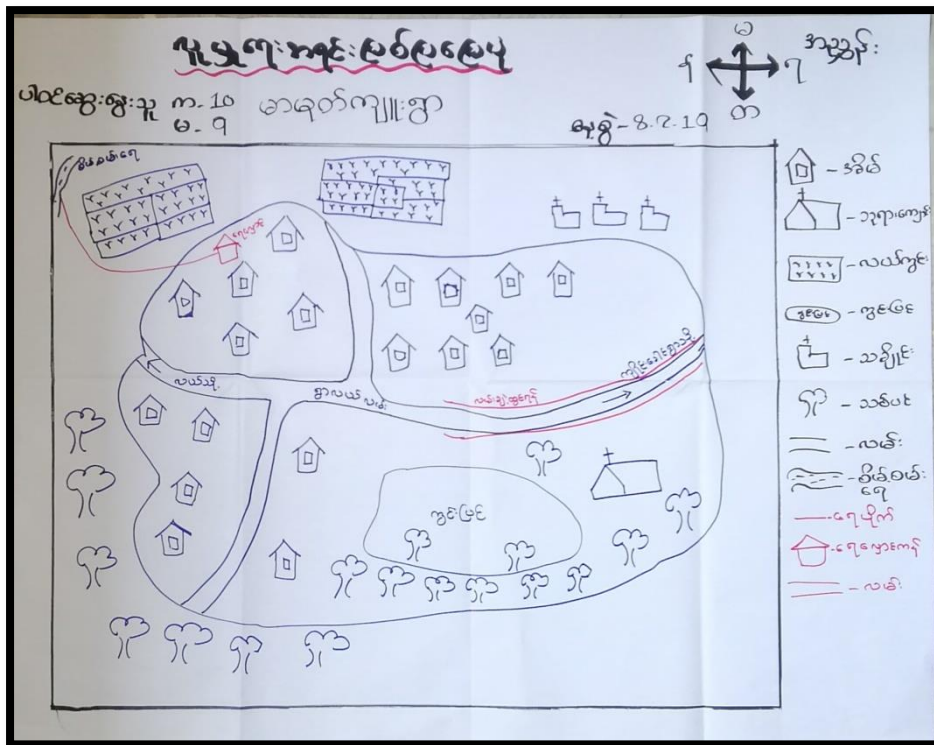 လူမှုရေးအရင်းမြစ်ပြမြေပုံ
ပါဝင်ဆွေးနွေးသူ က-10
မ-9
မာရတ်ကျူးရွာ
နေ့စွဲ-8.2.19
မ
တ
အညွှန်း
စိမ့်စမ်းရေ
ရေလှောင်ကန်
လယ်သို့
ရွာလယ်လမ်း
ကွင်းပြင်
- အိမ်
- ဘုရားကျောင်း
- လယ်ကွင်း
ကွင်းပြင် - ကွင်းပြင်
- သင်္ချိုင်း
- သစ်ပင်
- လမ်း
- စိမ့်စမ်းရေ
- ရေပိုက်
- ရေလှောင်ကန်
- လမ်း